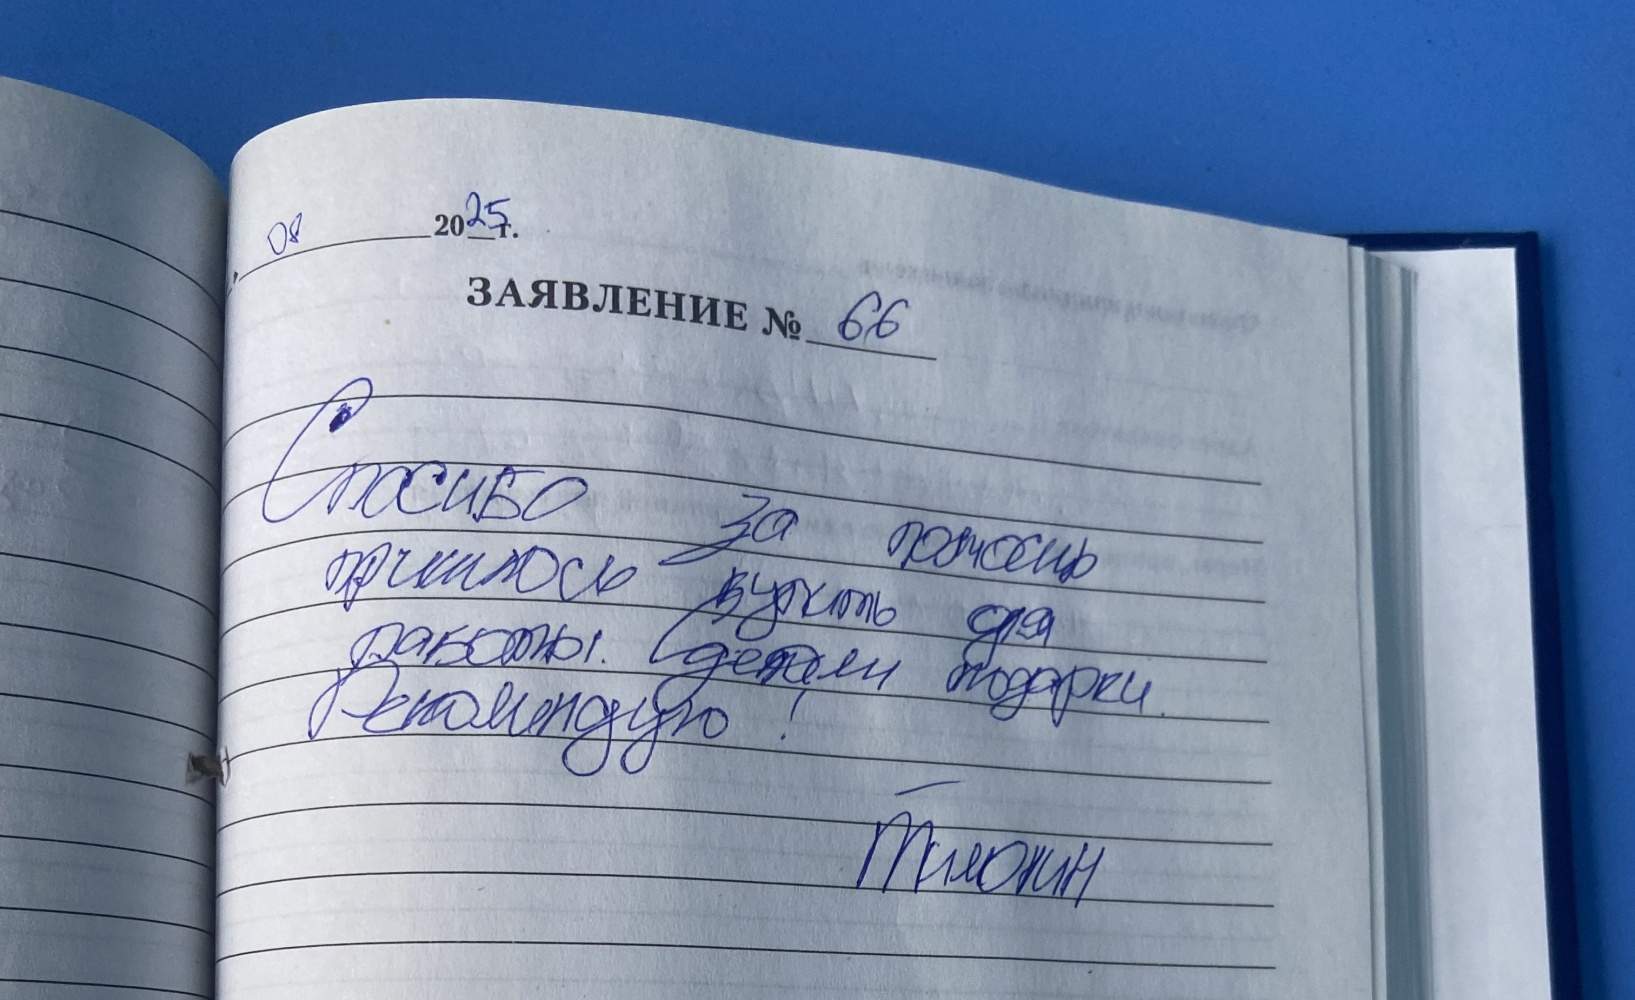 08 2025г.
ЗАЯВЛЕНИЕ № 66
Спасибо за помощь
пришлось купить для
работы. Сделали подарки.
Рекомендую!